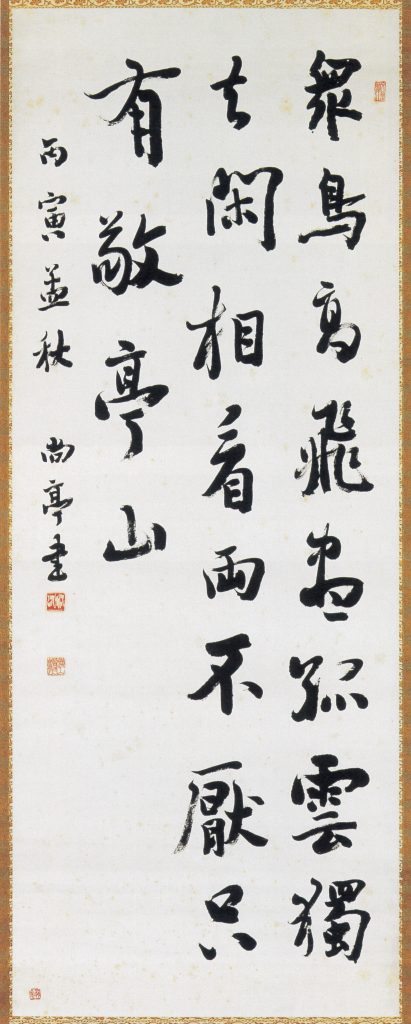 衆鳥高飛盡孤雲獨
去閑相看兩不厭只
有敬亭山
丙寅孟秋 尚亭書